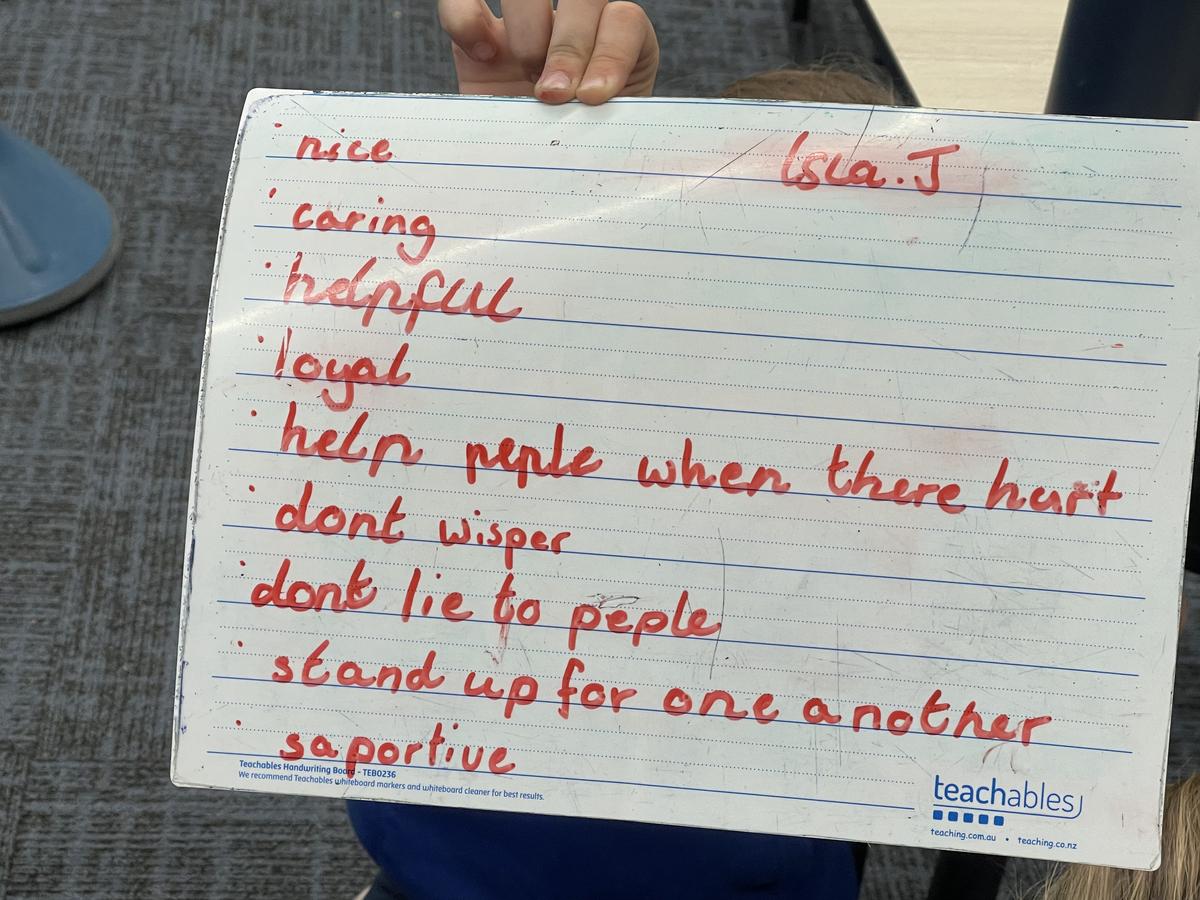 • nice
Isla.J
• caring
• helpful
• loyal
• help peple when there hurt
• dont wisper
• dont lie to peple
• stand up for one another
• saportive
Teachables Handwriting Board - TEB0236
We recommend Teachables whiteboard markers and whiteboard cleaner for best results.
teachables
teaching.com.au • teaching.co.nz